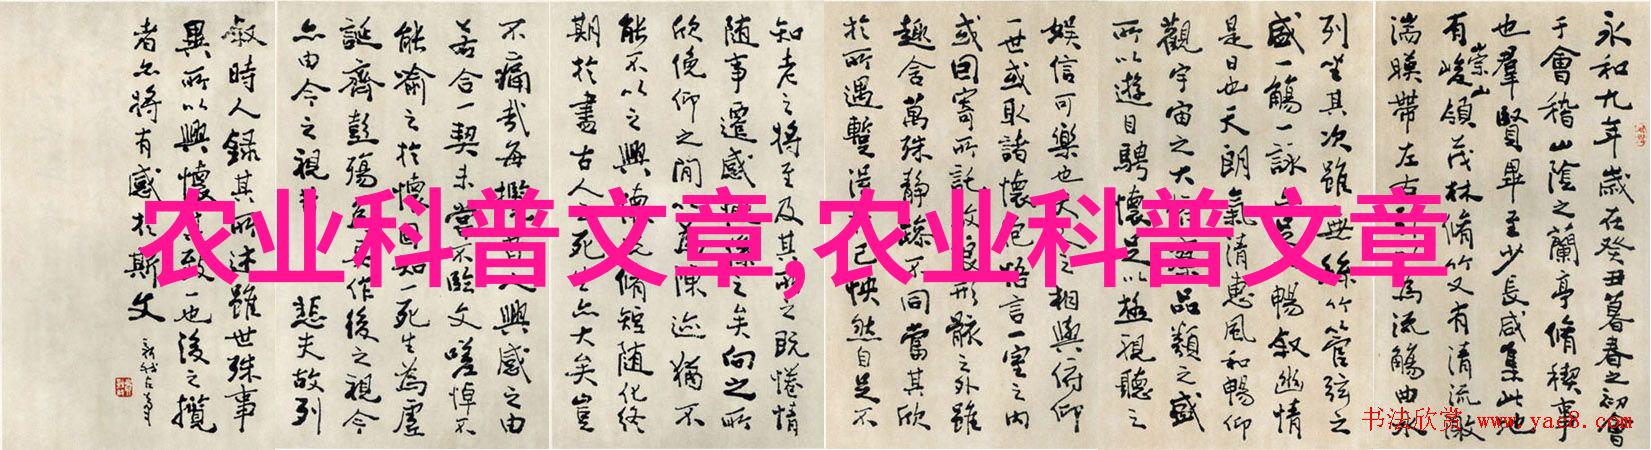 永和九年歲在癸丑暮春之初會
于會稽山陰之蘭亭脩稧事
也羣賢畢至少長咸集此地
有崇山峻領茂林脩竹又有清流激
湍暎帶左右引為流觴曲水
列坐其次雖無絲竹管弦之
盛一觴一詠足暢叙幽情
是日也天朗氣清惠風和暢仰
觀宇宙之大品類之盛
所以遊目騁懷足以極視聽之
娛信可樂也夫人之相與俯仰
一世或取諸懷抱悟言一室之內
或因寄所託放浪形骸之外雖
趣舍萬殊靜躁不同當其欣
於所遇暫得己怏然自足不
知老之將至及其所之既惓情
隨事遷感慨係之矣向之所
欣俛仰之間以為陳迹猶不
能不以之興懷況脩短隨化終
期於盡古人死生亦大矣豈
不痛哉每攬昔人興感之由
若合一契未嘗不臨文嗟悼不
能喻之於懷固知一死生為虛
誕齊彭殤為妄作後之視今
亦由今之視昔悲夫故列
叙時人錄其所述雖世殊事
異所以興懷其致一也後之攬
者亦將有感於斯文
农业科普文章,农业科普文章
书法欣赏 www.yac8.com